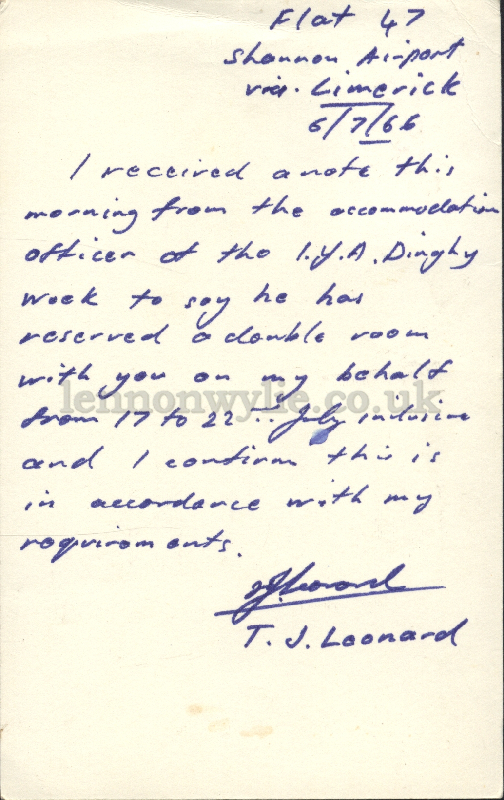 Flat 47
Shannon Airport
via. Limerick
6/7/66
I received a note this
morning from the accommodation
officer of the I.Y.A. Dinghy
Week to say he has
reserved a double room
with you on my behalf
lennonwylie.co.uk
from 17 to 22nd July inclusive
and I confirm this is
in accordance with my
requirements.
T.J. Leonard
T. J. Leonard